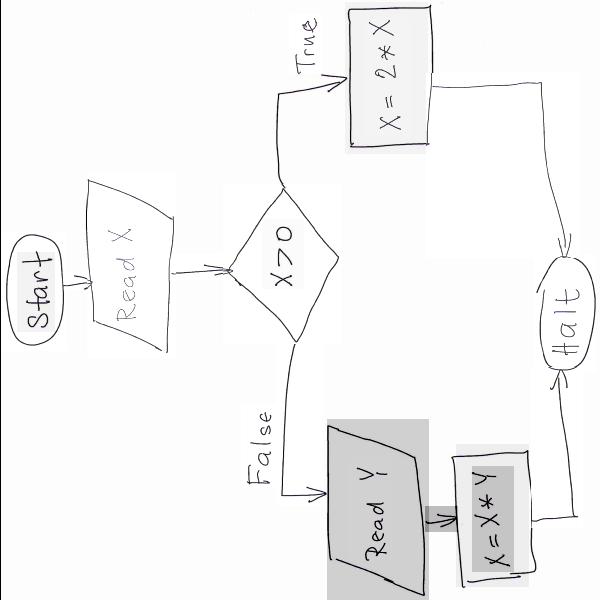 Start
Read X
X>0
True
X = 2*X
False
Read Y
X=X*Y
Halt